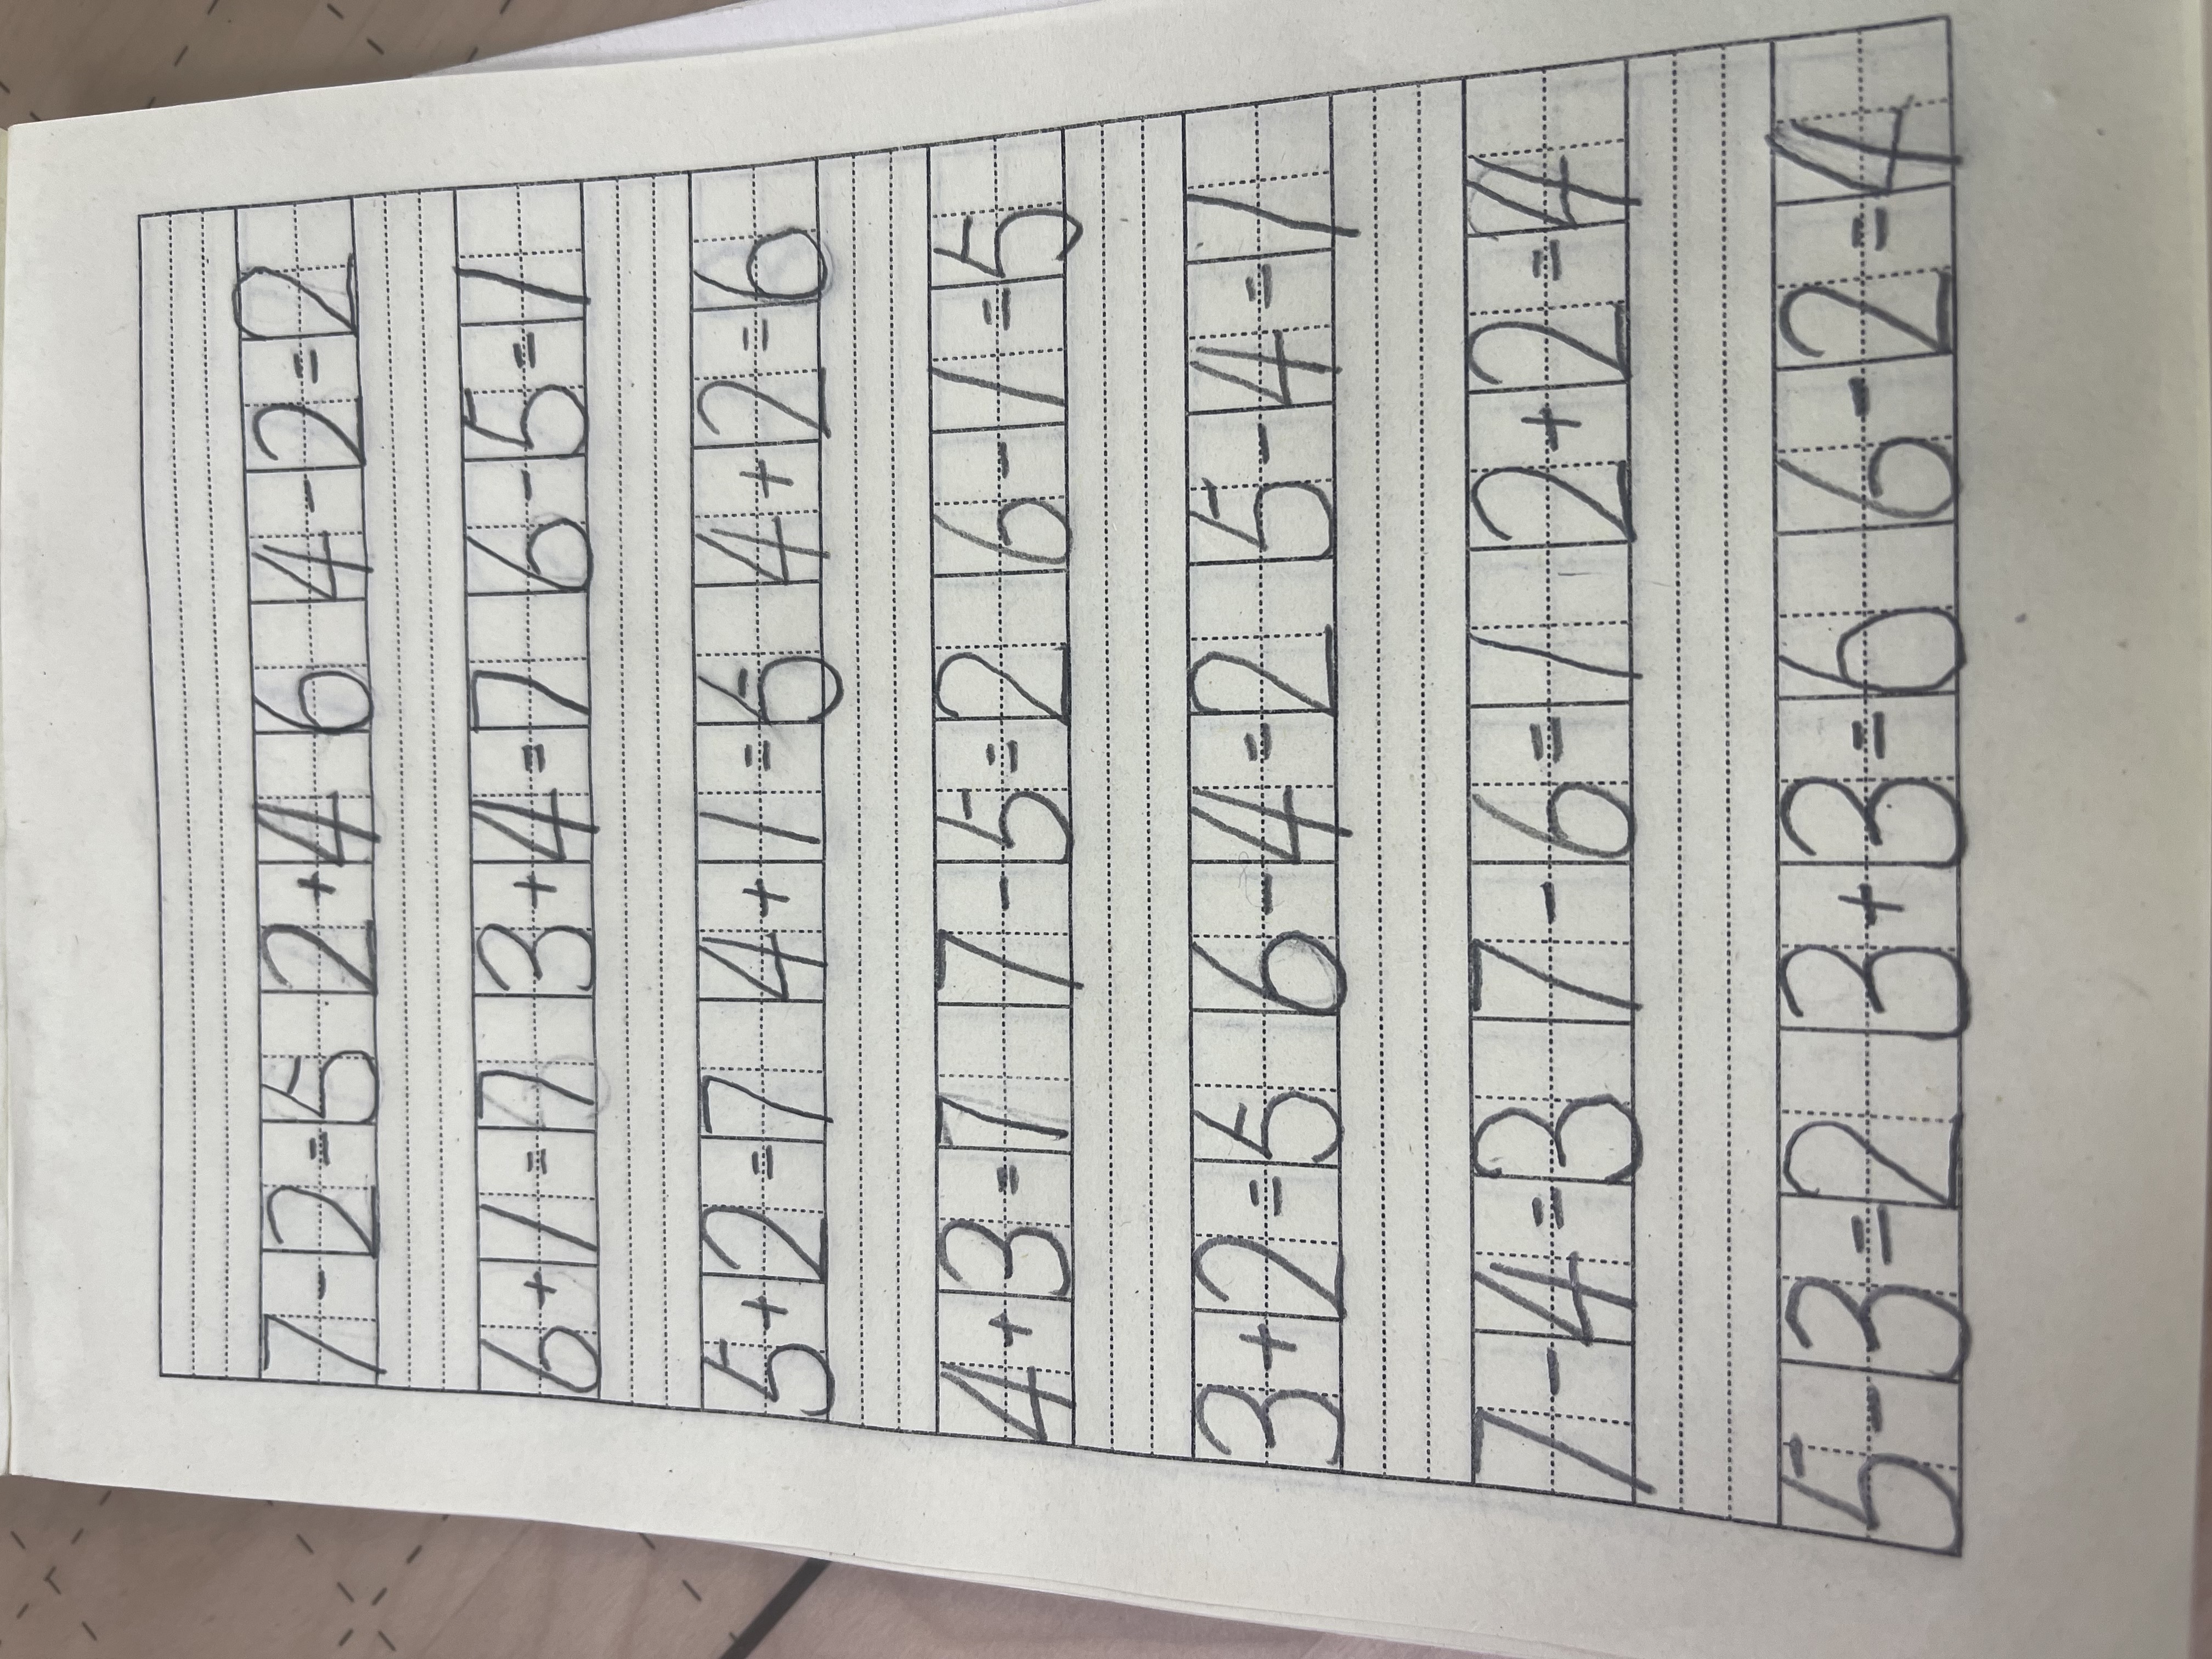 7-2=5 2+4 6 4-2=2
6+1=7 3+4=7 6-5=1
5+2=7 4+1=5 4+2=6
4+3=7 7-5=2 6-1=5
3+2=5 6-4=2 5-4=1
7-4=3 7-6=1 2+2=4
5-3=2 3+3=6 6-2=4